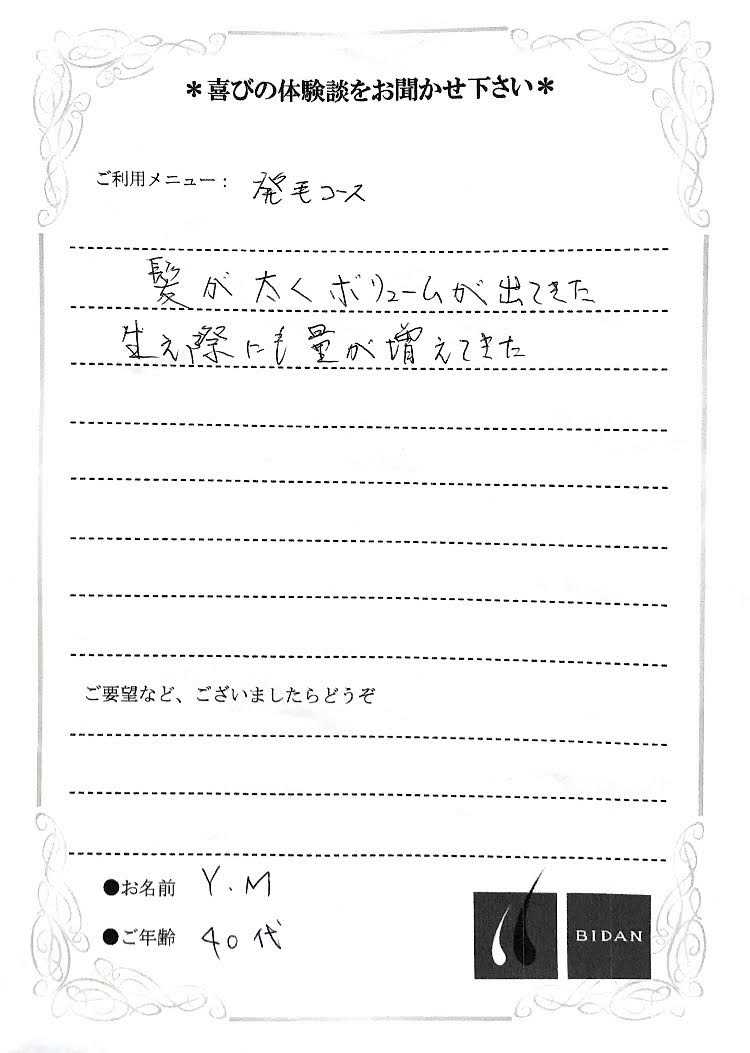 ＊喜びの体験談をお聞かせ下さい＊
ご利用メニュー： 発毛コース
髪が太くボリュームが出てきた
生え際にも量が増えてきた
ご要望など、ございましたらどうぞ
●お名前 Y.M
●ご年齢 40代
BIDAN